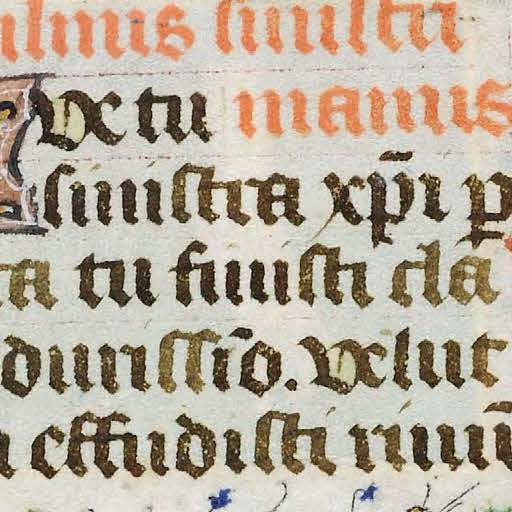 ulnus sinistri
Ve tu manus
sinistra xp̄i p
ta tu fuisti clā
durissiō. Velut
effudisti riuū